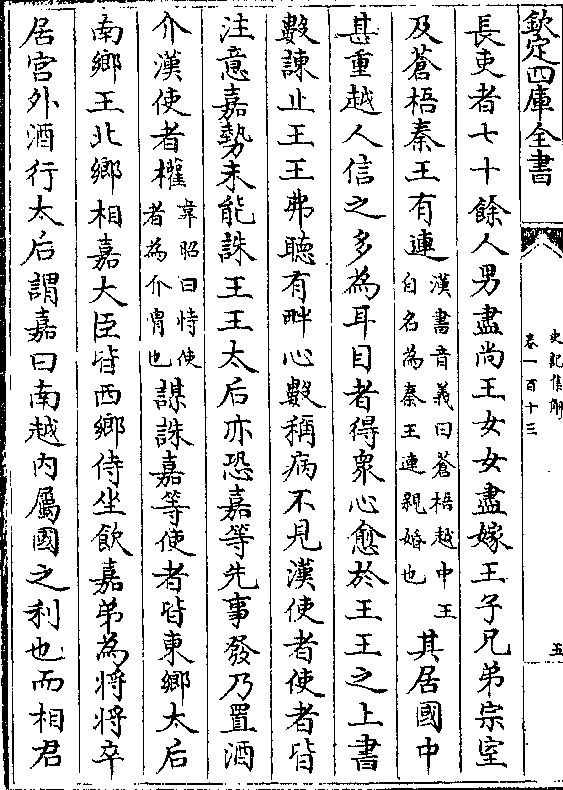 欽定四庫全書
史記集解
卷一百十三
五
長吏者七十餘人男盡尚王女女盡嫁王子兄弟宗室
及蒼梧秦王有連漢書音義曰蒼梧越中王自名為秦王連親婚也其居國中
甚重越人信之多為耳目者得衆心愈於王王之上書
數諫止王王弗聽有畔心數稱病不見漢使者使者皆
注意嘉勢未能誅王王太后亦恐嘉等先事發乃置酒
介漢使者權韋昭曰恃使者為介胄也謀誅嘉等使者皆東鄉太后
南鄉王北鄉相嘉大臣皆西鄉侍坐飲嘉弟為將將卒
居宫外酒行太后謂嘉曰南越内屬國之利也而相君